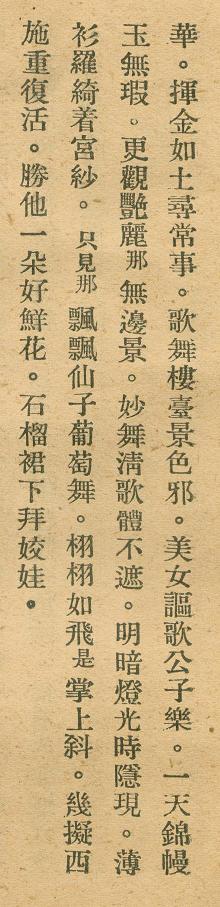 華。揮金如土尋常事。歌舞樓臺景色邪。美女謳歌公子樂。一天錦幔
玉無瑕。更觀艷麗那無邊景。妙舞清歌體不遮。明暗燈光時隱現。薄
衫羅綺着宮紗。只見那飄飄仙子葡萄舞。栩栩如飛是掌上斜。幾擬西
施重復活。勝他一朵好鮮花。石榴裙下拜姣娃。